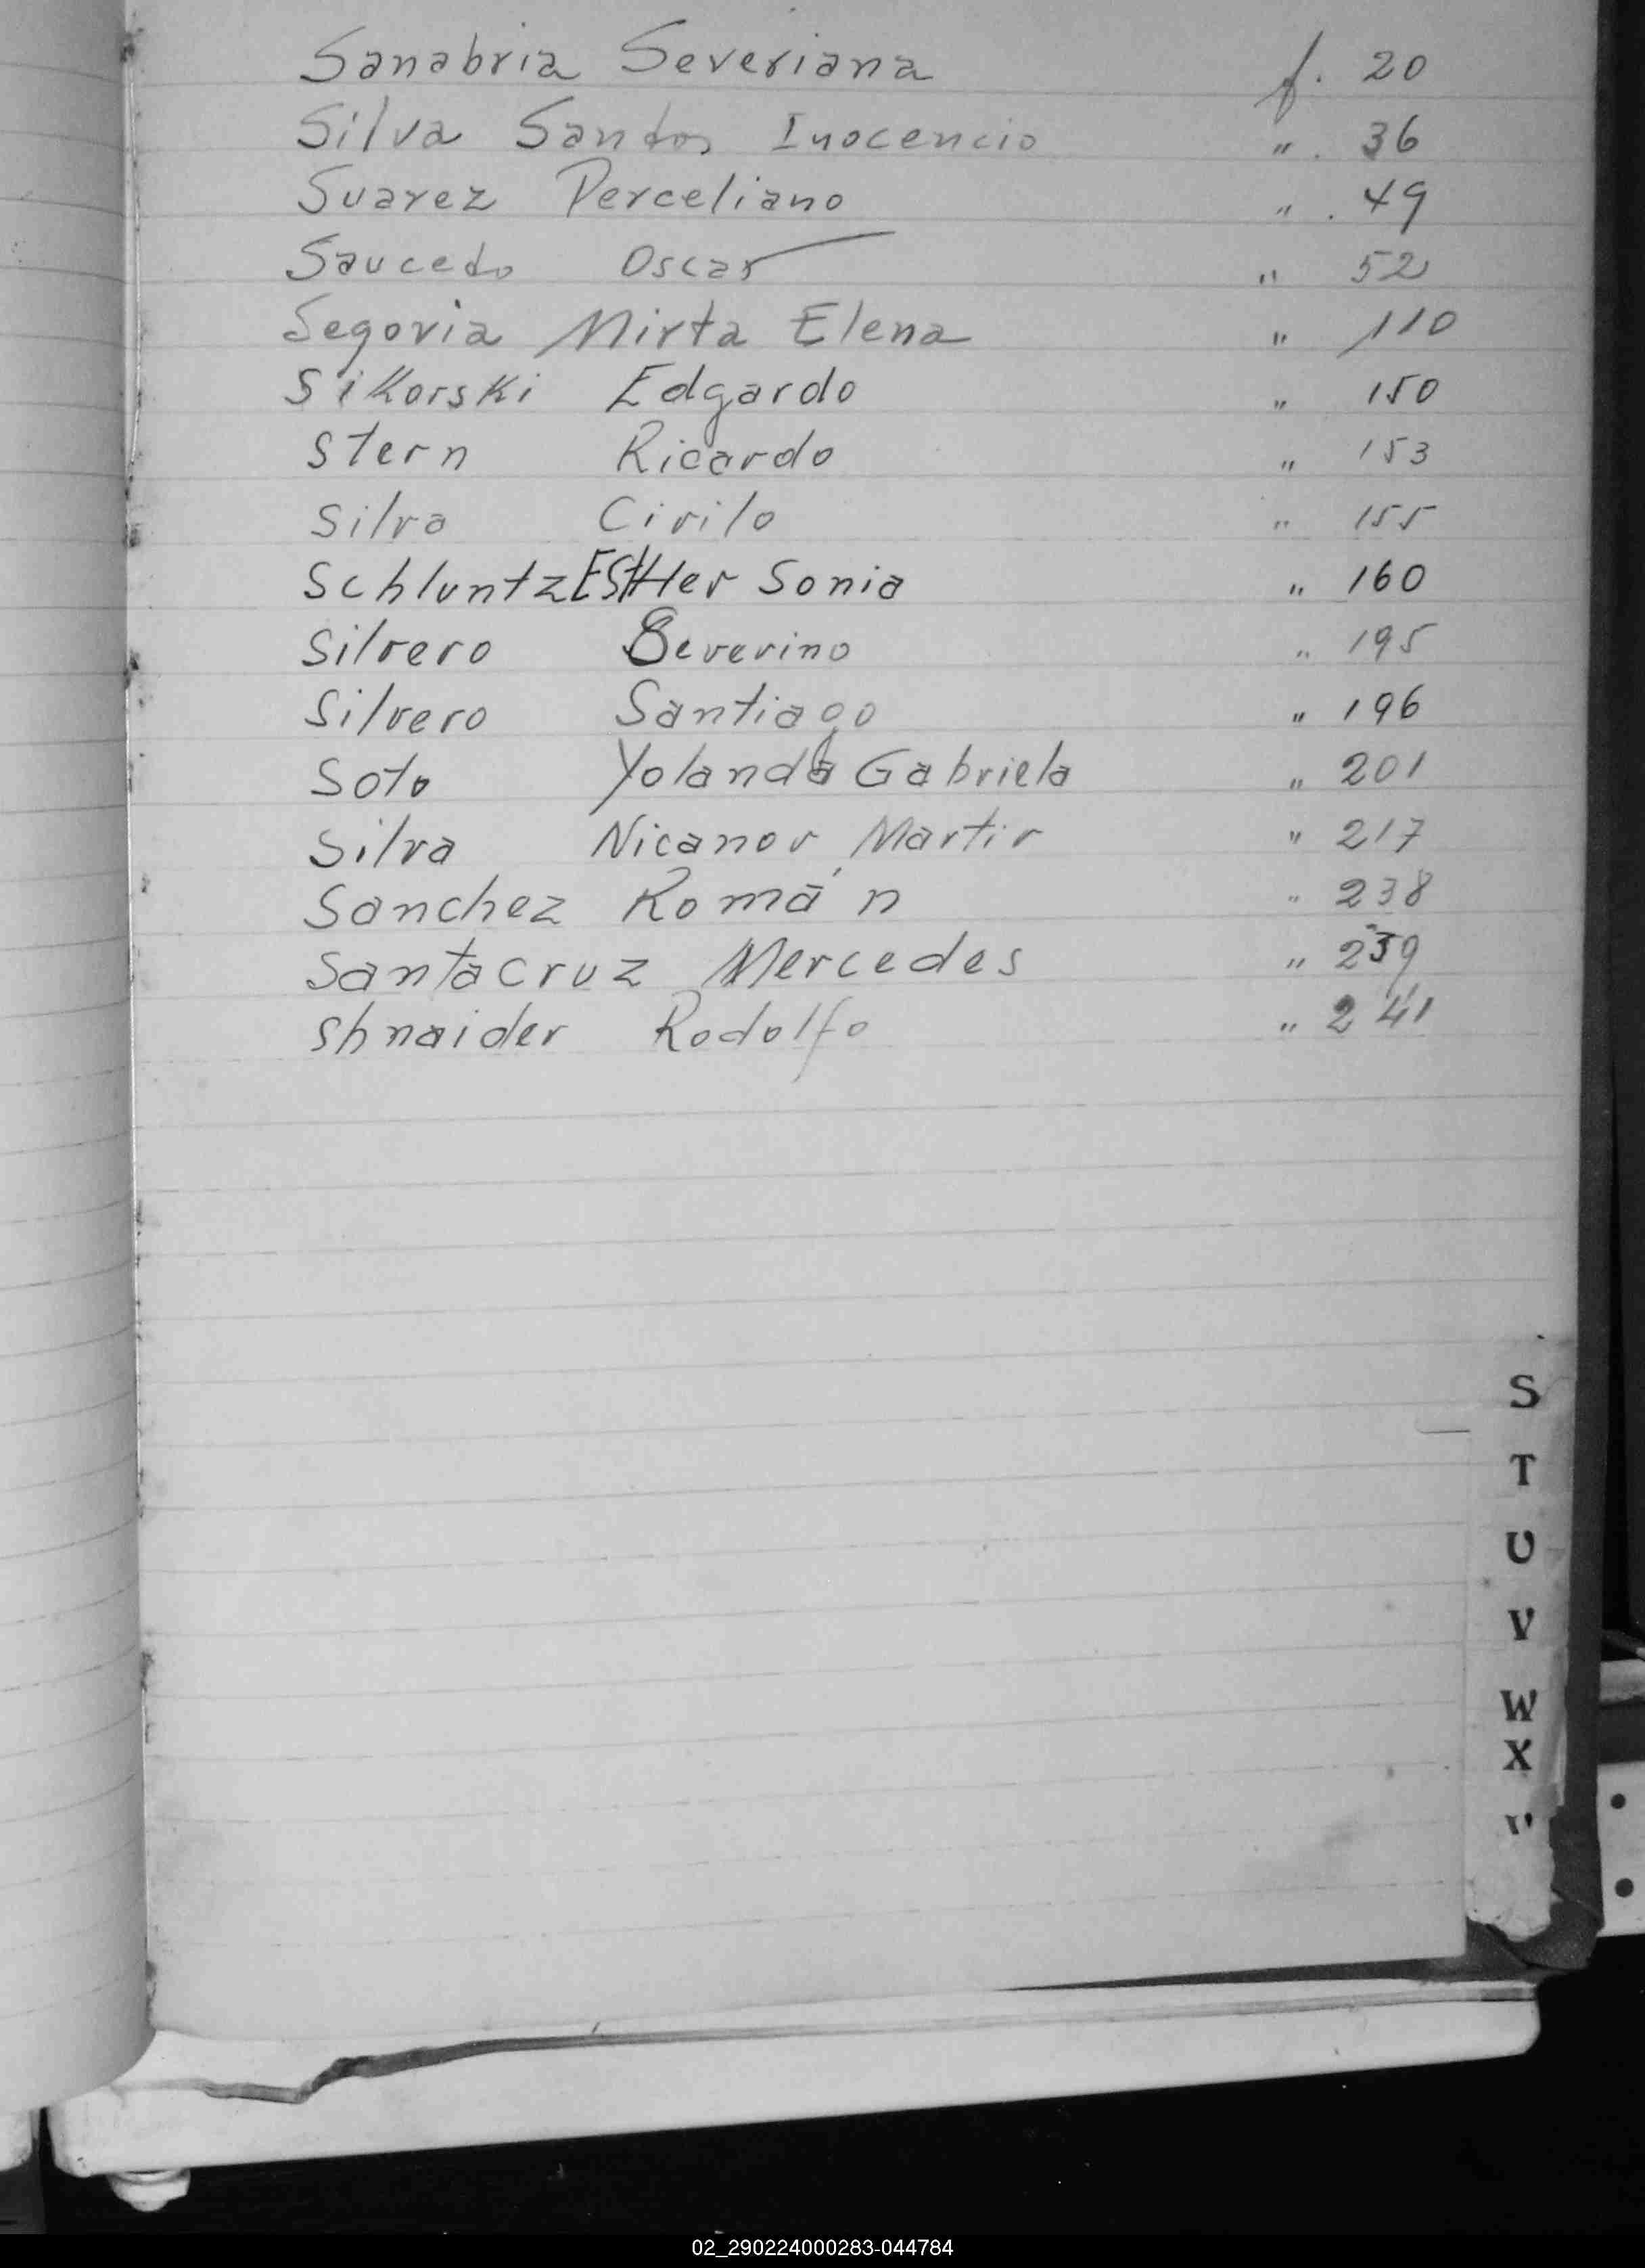 Sanabria Severiana f. 20
Silva Santos Inocencio " . 36
Suarez Perceliano " . 49
Saucedo Oscar " 52
Segovia Mirta Elena " 110
Sikorski Edgardo " 150
Stern Ricardo " 153
Silva Cirilo " 155
Schluntz ESTHer Sonia " 160
Silvero Severino " 195
Silvero Santiago " 196
Soto Yolanda Gabriela " 201
Silva Nicanor Martir " 217
Sanchez Román " 238
Santacruz Mercedes " 239
Shnaider Rodolfo " 241
S
T
U
V
W
X
02_290224000283-044784